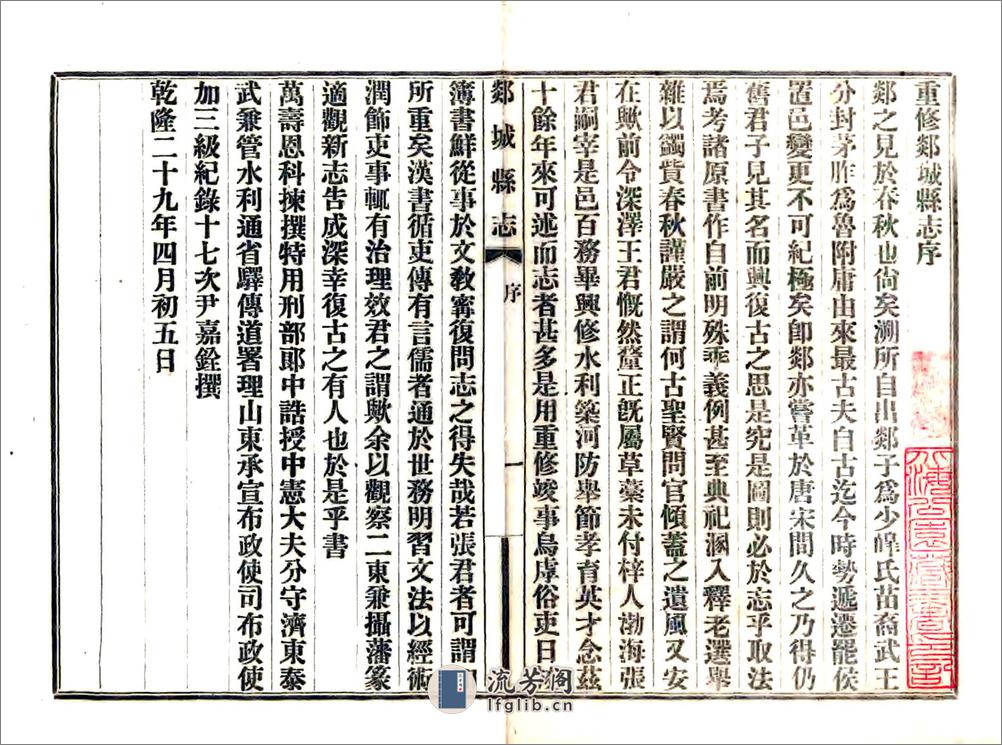 重修郯城縣志序
郯之見於春秋也尙矣溯所自出郯子爲少皡氏苗裔武王
分封茅胙爲魯附庸由來最古夫自古迄今時勢遞遷罷侯
置邑變更不可紀極矣卽郯亦嘗革於唐宋間久之乃得仍
舊君子見其名而興復古之思是究是圖則必於志乎取法
焉考諸原書作自前明殊乖義例甚至典祀溷入釋老選舉
雜以蠲貲春秋謹嚴之謂何古聖賢問官傾蓋之遺風又安
在歟前令深澤王君慨然釐正旣屬草藁未付梓人渤海張
君嗣宰是邑百務畢興修水利築河防舉節孝育英才念茲
十餘年來可述而志者甚多是用重修竣事烏虖俗吏日
郯城縣志 序 一
簿書鮮從事於文敎寗復問志之得失哉若張君者可謂
所重矣漢書循吏傳有言儒者通於世務明習文法以經術
潤飾吏事輒有治理效君之謂歟余以觀察二東兼攝藩篆
適觀新志告成深幸復古之有人也於是乎書
萬壽恩科揀撰特用刑部郞中誥授中憲大夫分守濟東泰
武兼管水利通省驛傳道署理山東承宣布政使司布政使
加三級紀錄十七次尹嘉銓撰
乾隆二十九年四月初五日
流芳閣
lfglib.cn